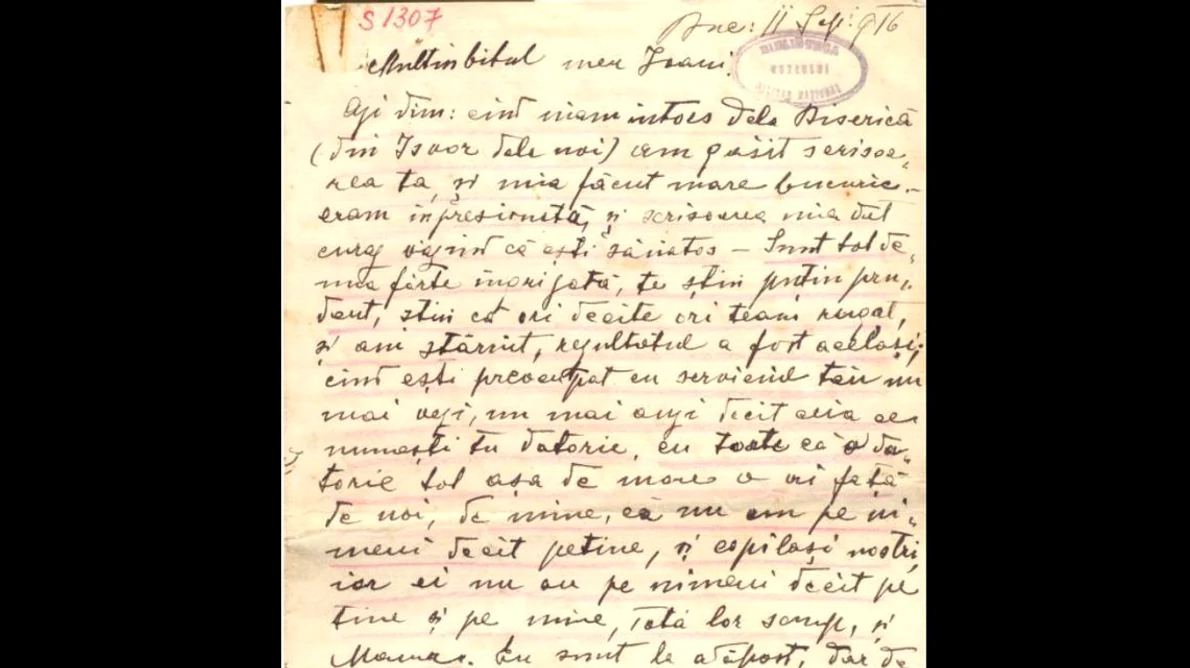 S 1307
Buc: 11 Sep: 916
Multiubitul meu Joani.
Azi dim: cînd miam intors dela Biserică
(din Isvor dela noi) am găsit scrisoa„
rea ta, și mia făcut mare bucurie.-
eram inpresionată, și scrisoarea mia dat
curaj văzînd că ești sănatos – Sunt totde„
una förte ingrijată, te știu puțin pru„
dent, știu că ori decîte ori team rugat,
și am stăruit, rezultatul a fost acelaşi;
cînd ești preocupat cu serviciul tău nu
mai vezi, nu mai auzi decît ceia ce
numești tu datorie, cu toate că o da„
torie tot așa de mare o ai față
de noi, de mine, că nu am pe ni„
meni decît petine, și copilași nostri,
iar ei nu au pe nimeni decît pe
tine și pe mine, Tata lor scump, și
Mama. Eu sunt la adăpost, dar de